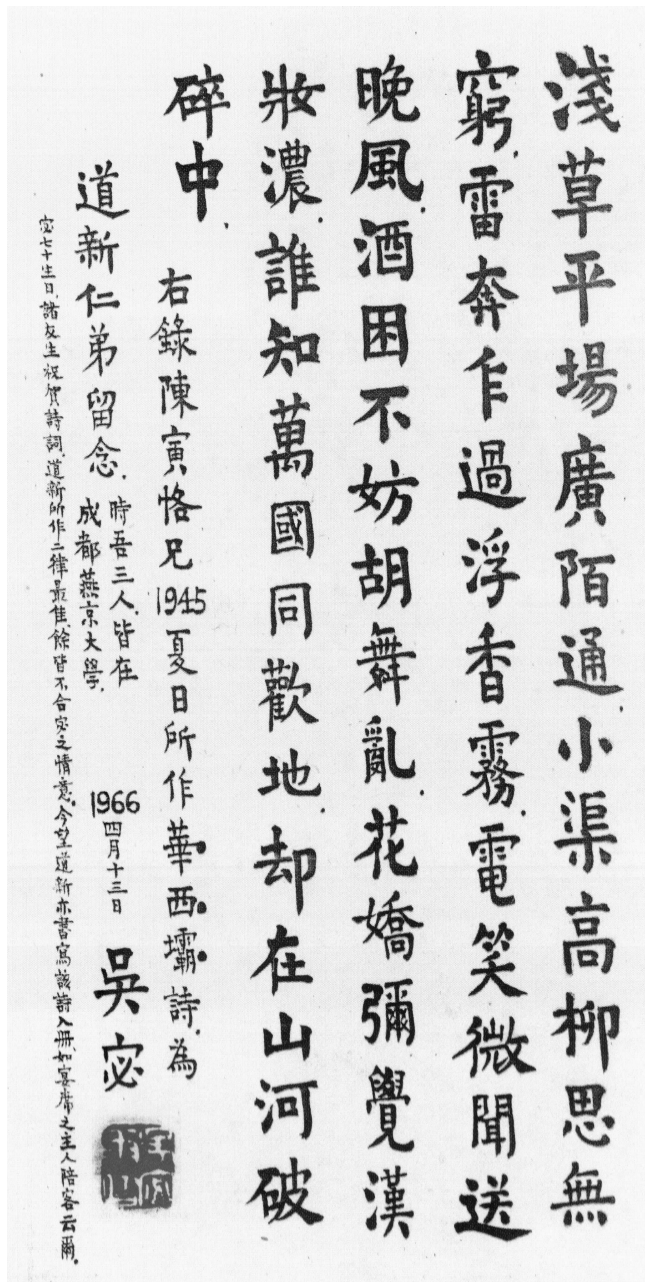 淺草平場廣陌通小渠高柳思無
窮雷奔乍過浮香霧電笑微聞送
晚風酒困不妨胡舞亂花嬌彌覺漢
妝濃誰知萬國同歡地却在山河破
碎中
右錄陳寅恪兄1945夏日所作華西壩詩為
道新仁弟留念
時吾三人皆在
成都燕京大學
1966四月十三日
吳宓
宓七十生日諸友生祝賀詩詞道新所作二律最佳餘皆不合宓之情意今望道新亦書寫該詩入冊如宴席之主人陪客云爾